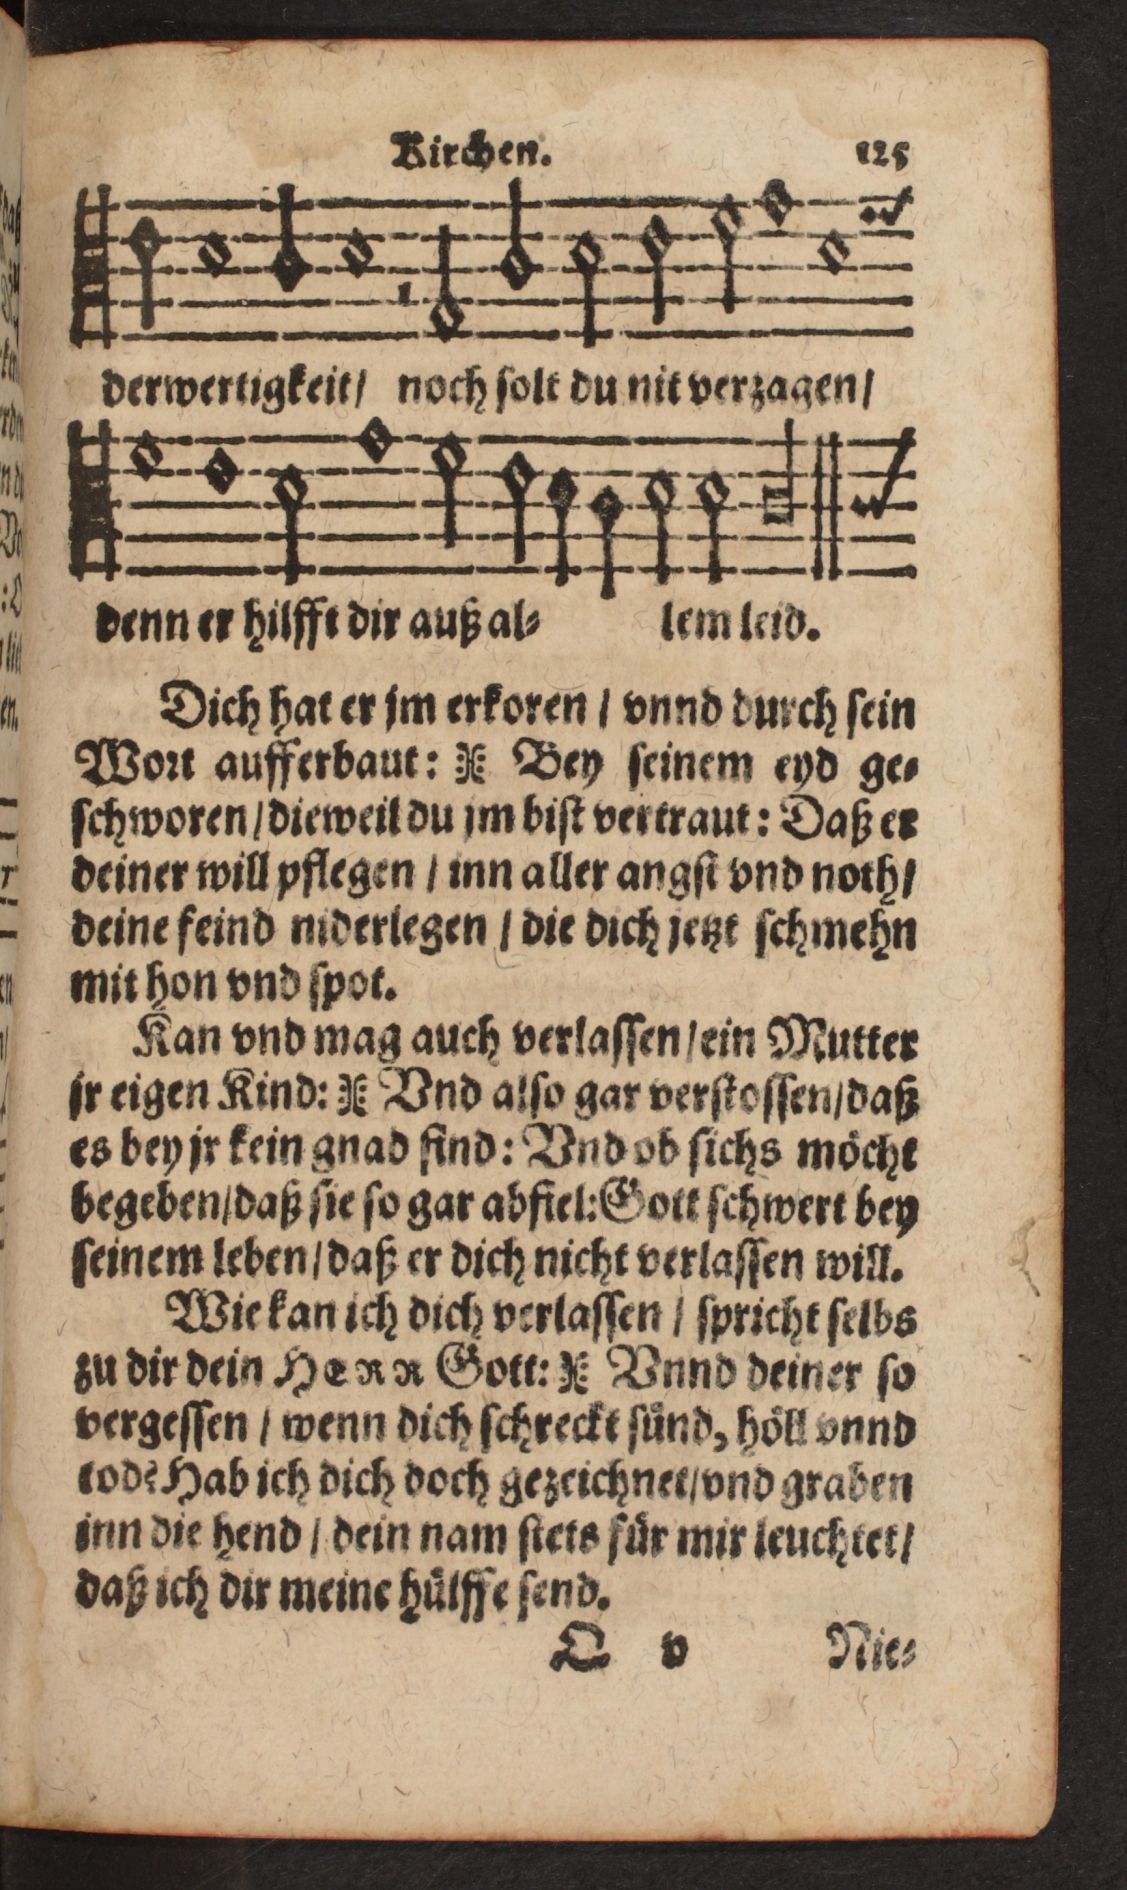 Kirchen. 125
derwertigkeit/ noch solt du nit verzagen/
denn er hilfft dir auß al⸗ lem leid.
Dich hat er jm erkoren / vnnd durch sein
Wort aufferbaut: Bey seinem eyd ge⸗
schworen / dieweil du jm bist vertraut: Daß er
deiner will pflegen / inn aller angst vnd noth/
deine feind niderlegen / die dich jetzt schmehn
mit hon vnd spot.
Kan vnd mag auch verlassen / ein Mutter
jr eigen Kind: Vnd also gar verstossen/daß
es bey jr kein gnad find: Vnd ob sichs möcht
begeben/daß sie so gar abfiel: Gott schwert bey
seinem leben / daß er dich nicht verlassen will.
Wie kan ich dich verlassen / spricht selbs
zu dir dein HERR Gott: Vnnd deiner so
vergessen / wenn dich schreckt sünd, höll vnnd
tod? Hab ich dich doch gezeichnet/vnd graben
inn die hend / dein nam stets für mir leuchtet/
daß ich dir meine hülffe send.
Q v Nie⸗